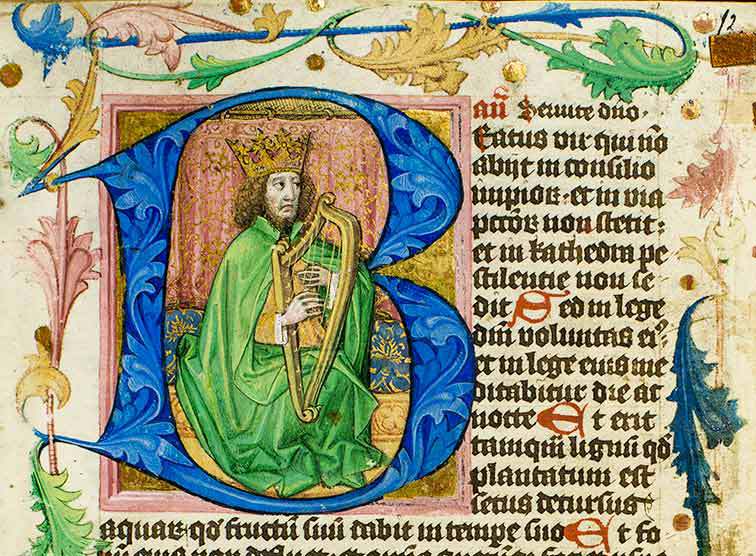 12
añ Seruite dño.
Beatus vir qui nō
abijt in consilio
impioꝝ· et in via
pctōꝝ non stetit:
et in kathedra pe
stilentie non se
dit Sed in lege
dñi voluntas eiꝰ
et in lege eius me
ditabitur die ac
nocte Et erit
tamqm̄ lignū qd̄
plantatum est
secus decursus
aquaꝝ qd̄ fructū suū dabit in tempe suo Et fo